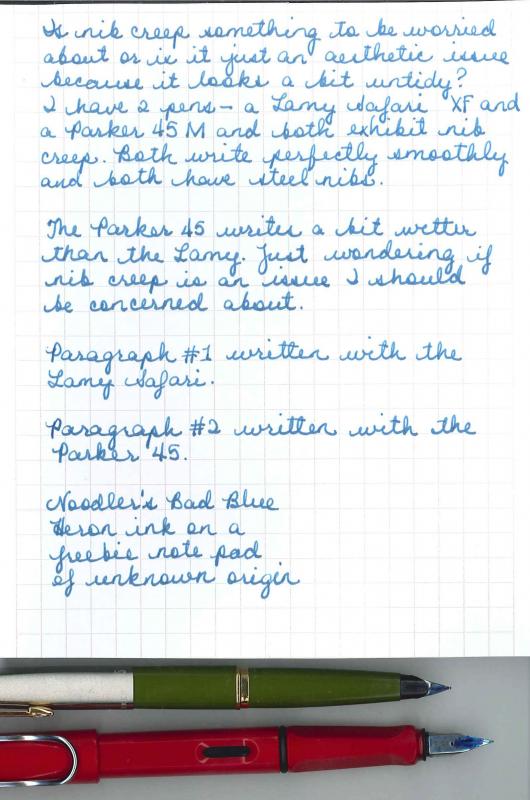 Is nib creep something to be worried
about or is it just an aesthetic issue
because it looks a bit untidy?
I have 2 pens - a Lamy Safari XF and
a Parker 45 M and both exhibit nib
creep. Both write perfectly smoothly
and both have steel nibs.
The Parker 45 writes a bit wetter
than the Lamy. Just wondering if
nib creep is an issue I should
be concerned about.
Paragraph #1 written with the
Lamy Safari.
Paragraph #2 written with the
Parker 45.
Noodler's Bad Blue
Heron ink on a
freebie note pad
of unknown origin